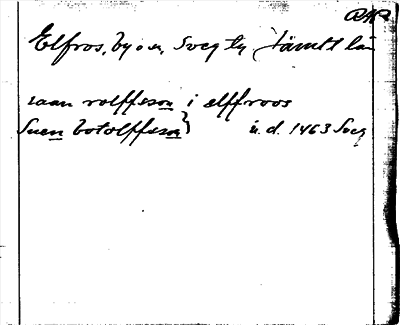 RAP
Elfros, by o n, Sveg tg Jämtl län
raan rolffson i elffroos
Suen botolffson} u. d. 1463 Sveg